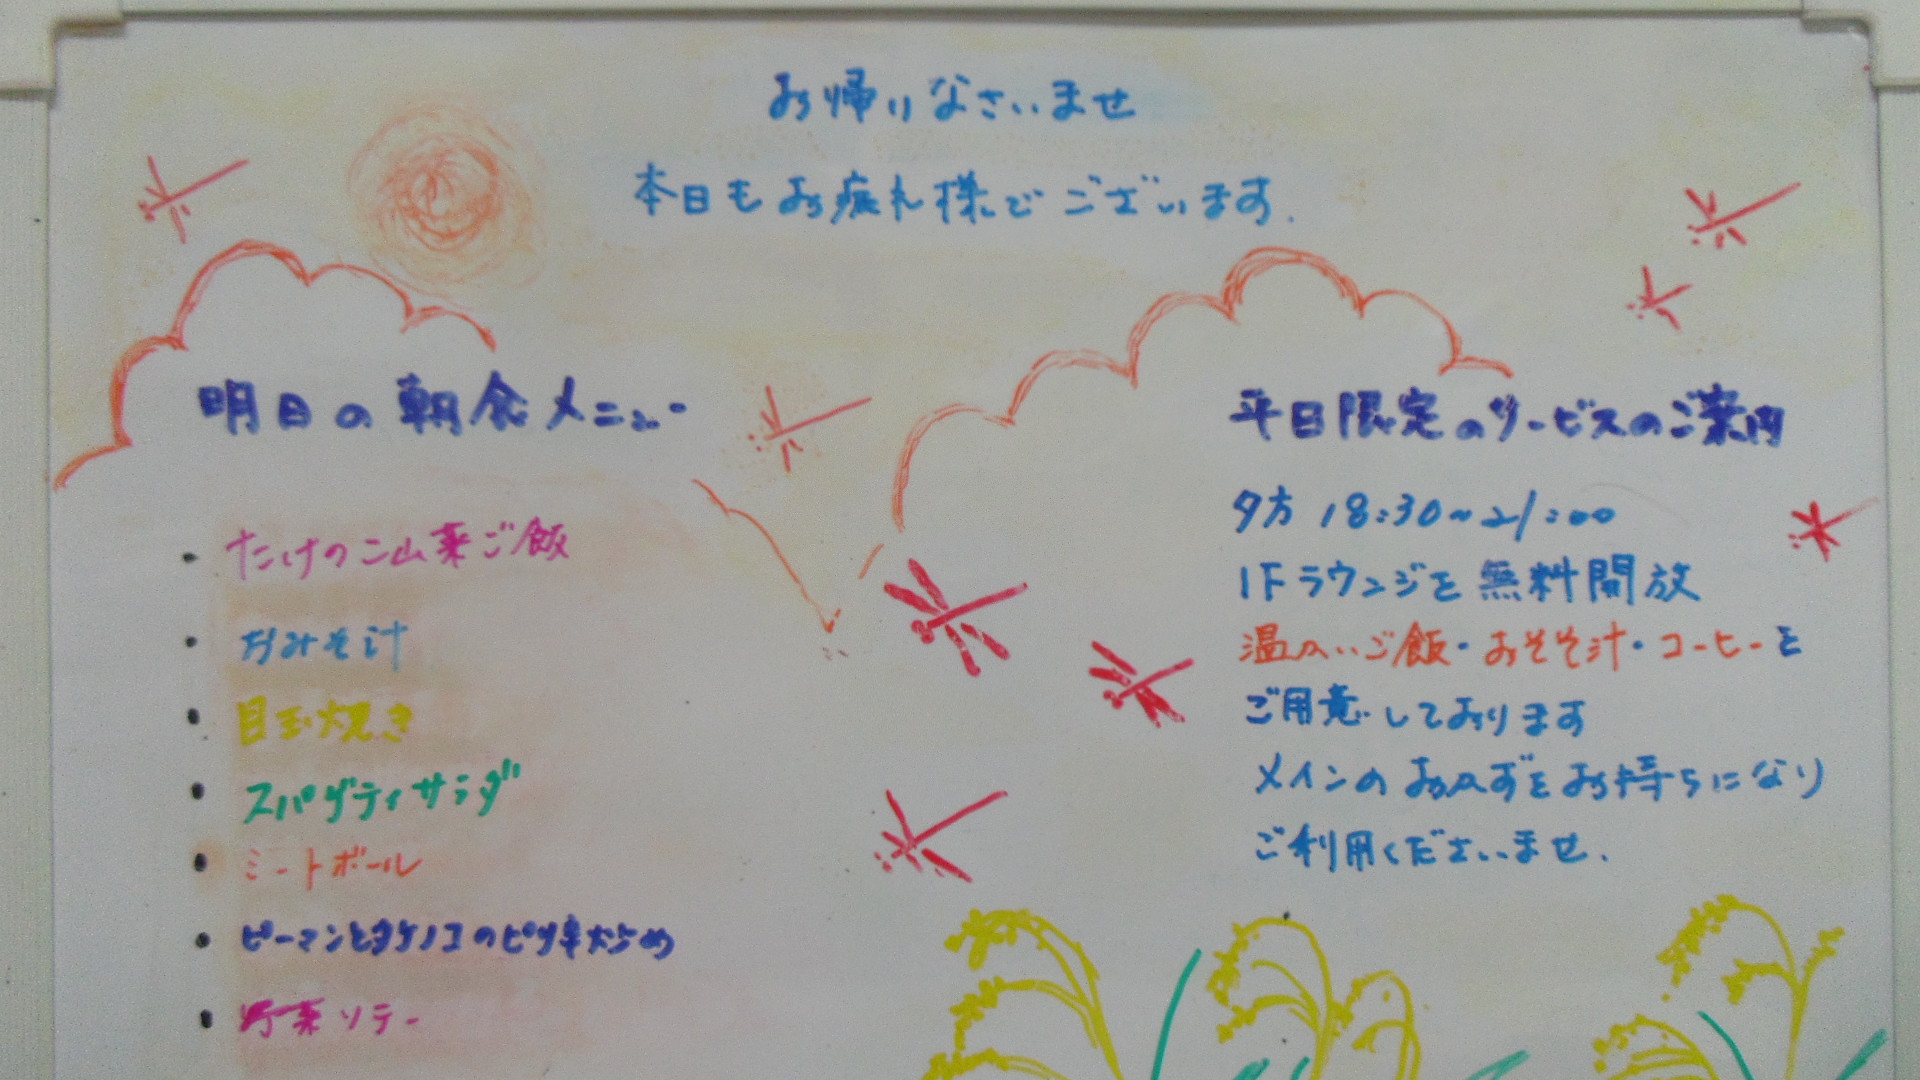 お帰りなさいませ
本日もお疲れ様でございます.
明日の朝食メニュー
・たけのこ山菜ご飯
・おみそ汁
・目玉焼き
・スパゲティサラダ
・ミートボール
・ピーマンとタケノコのピリ辛炒め
・野菜ソテー
平日限定のサービスのご案内
夕方 18:30~21:00
1Fラウンジを無料開放
温かいご飯・おみそ汁・コーヒーを
ご用意しております
メインのおかずをお持ちになり
ご利用くださいませ.